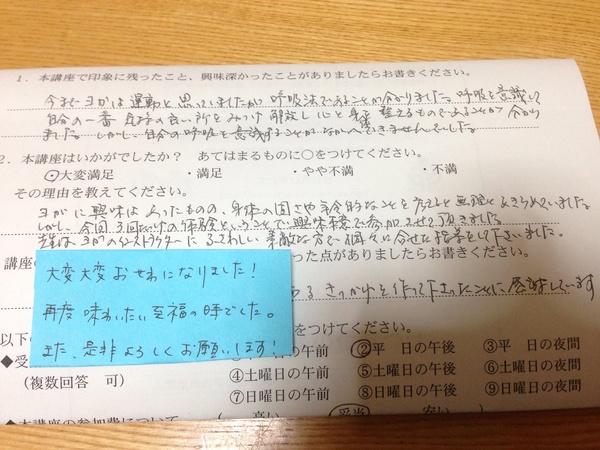 1．本講座で印象に残ったこと、興味深かったことがありましたらお書きください。
今までヨガは運動と思っていましたが呼吸法であることが分かりました。呼吸を意識して
自分の一番 気持の良い所をみつけ解放し心と 整えるものであることが 分かり
ました。しかし自分の呼吸を意識することがなかなかできませんでした。
2．本講座はいかがでしたか？ あてはまるものに○をつけてください。
・大変満足 ・満足 ・やや不満 ・不満
その理由を教えてください。
ヨガに興味はあったものの、身体の固さや年令的なことを考えると無理とあきらめていました。
しかし、今回、3回だけの体験ということで興味 で参加させて頂きました。
先生はヨガのインストラクターにふさわしい素敵な方で個々に合せた指導をして下さいました。
講座の った点がありましたらお書きください。
大変大変おせわになりました！
あるきっかけを作って下さったことに感謝しています
再度味わいたい至福の時でした。
また、是非よろしくお願いします！
以下の をつけてください。
◆受 の午前 ②平 日の午後 ③平 日の夜間
（複数回答 可） ④土曜日の午前 ⑤土曜日の午後 ⑥土曜日の夜間
⑦日曜日の午前 ⑧日曜日の午後 ⑨日曜日の夜間
◆本講座の参加費について （ 高い 妥当 安い ）